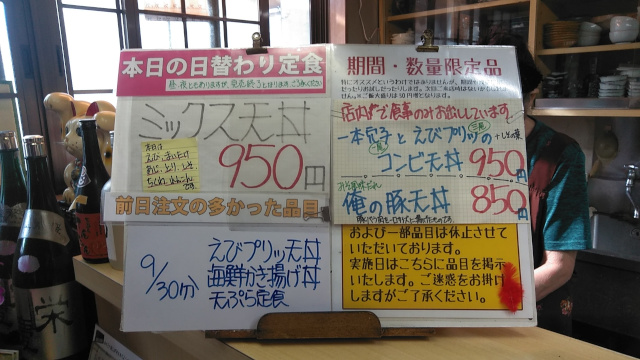 本日の日替わり定食
ミックス天丼
本日は
えび、まいたけ
950円
前日注文の多かった品目
9/30分
えびプリッ天丼
海鮮かき揚げ丼
天ぷら定食
期間・数量限定品
店内で食事のみお出ししています。
一本穴子とえびプリッの
コンビ天丼 950円
俺の豚天丼 850円
および一部品目は休止させて
いただいております。
実施日はこちらに品目を掲示
いたします。ご迷惑をお掛け
しますがご了承ください。
栄